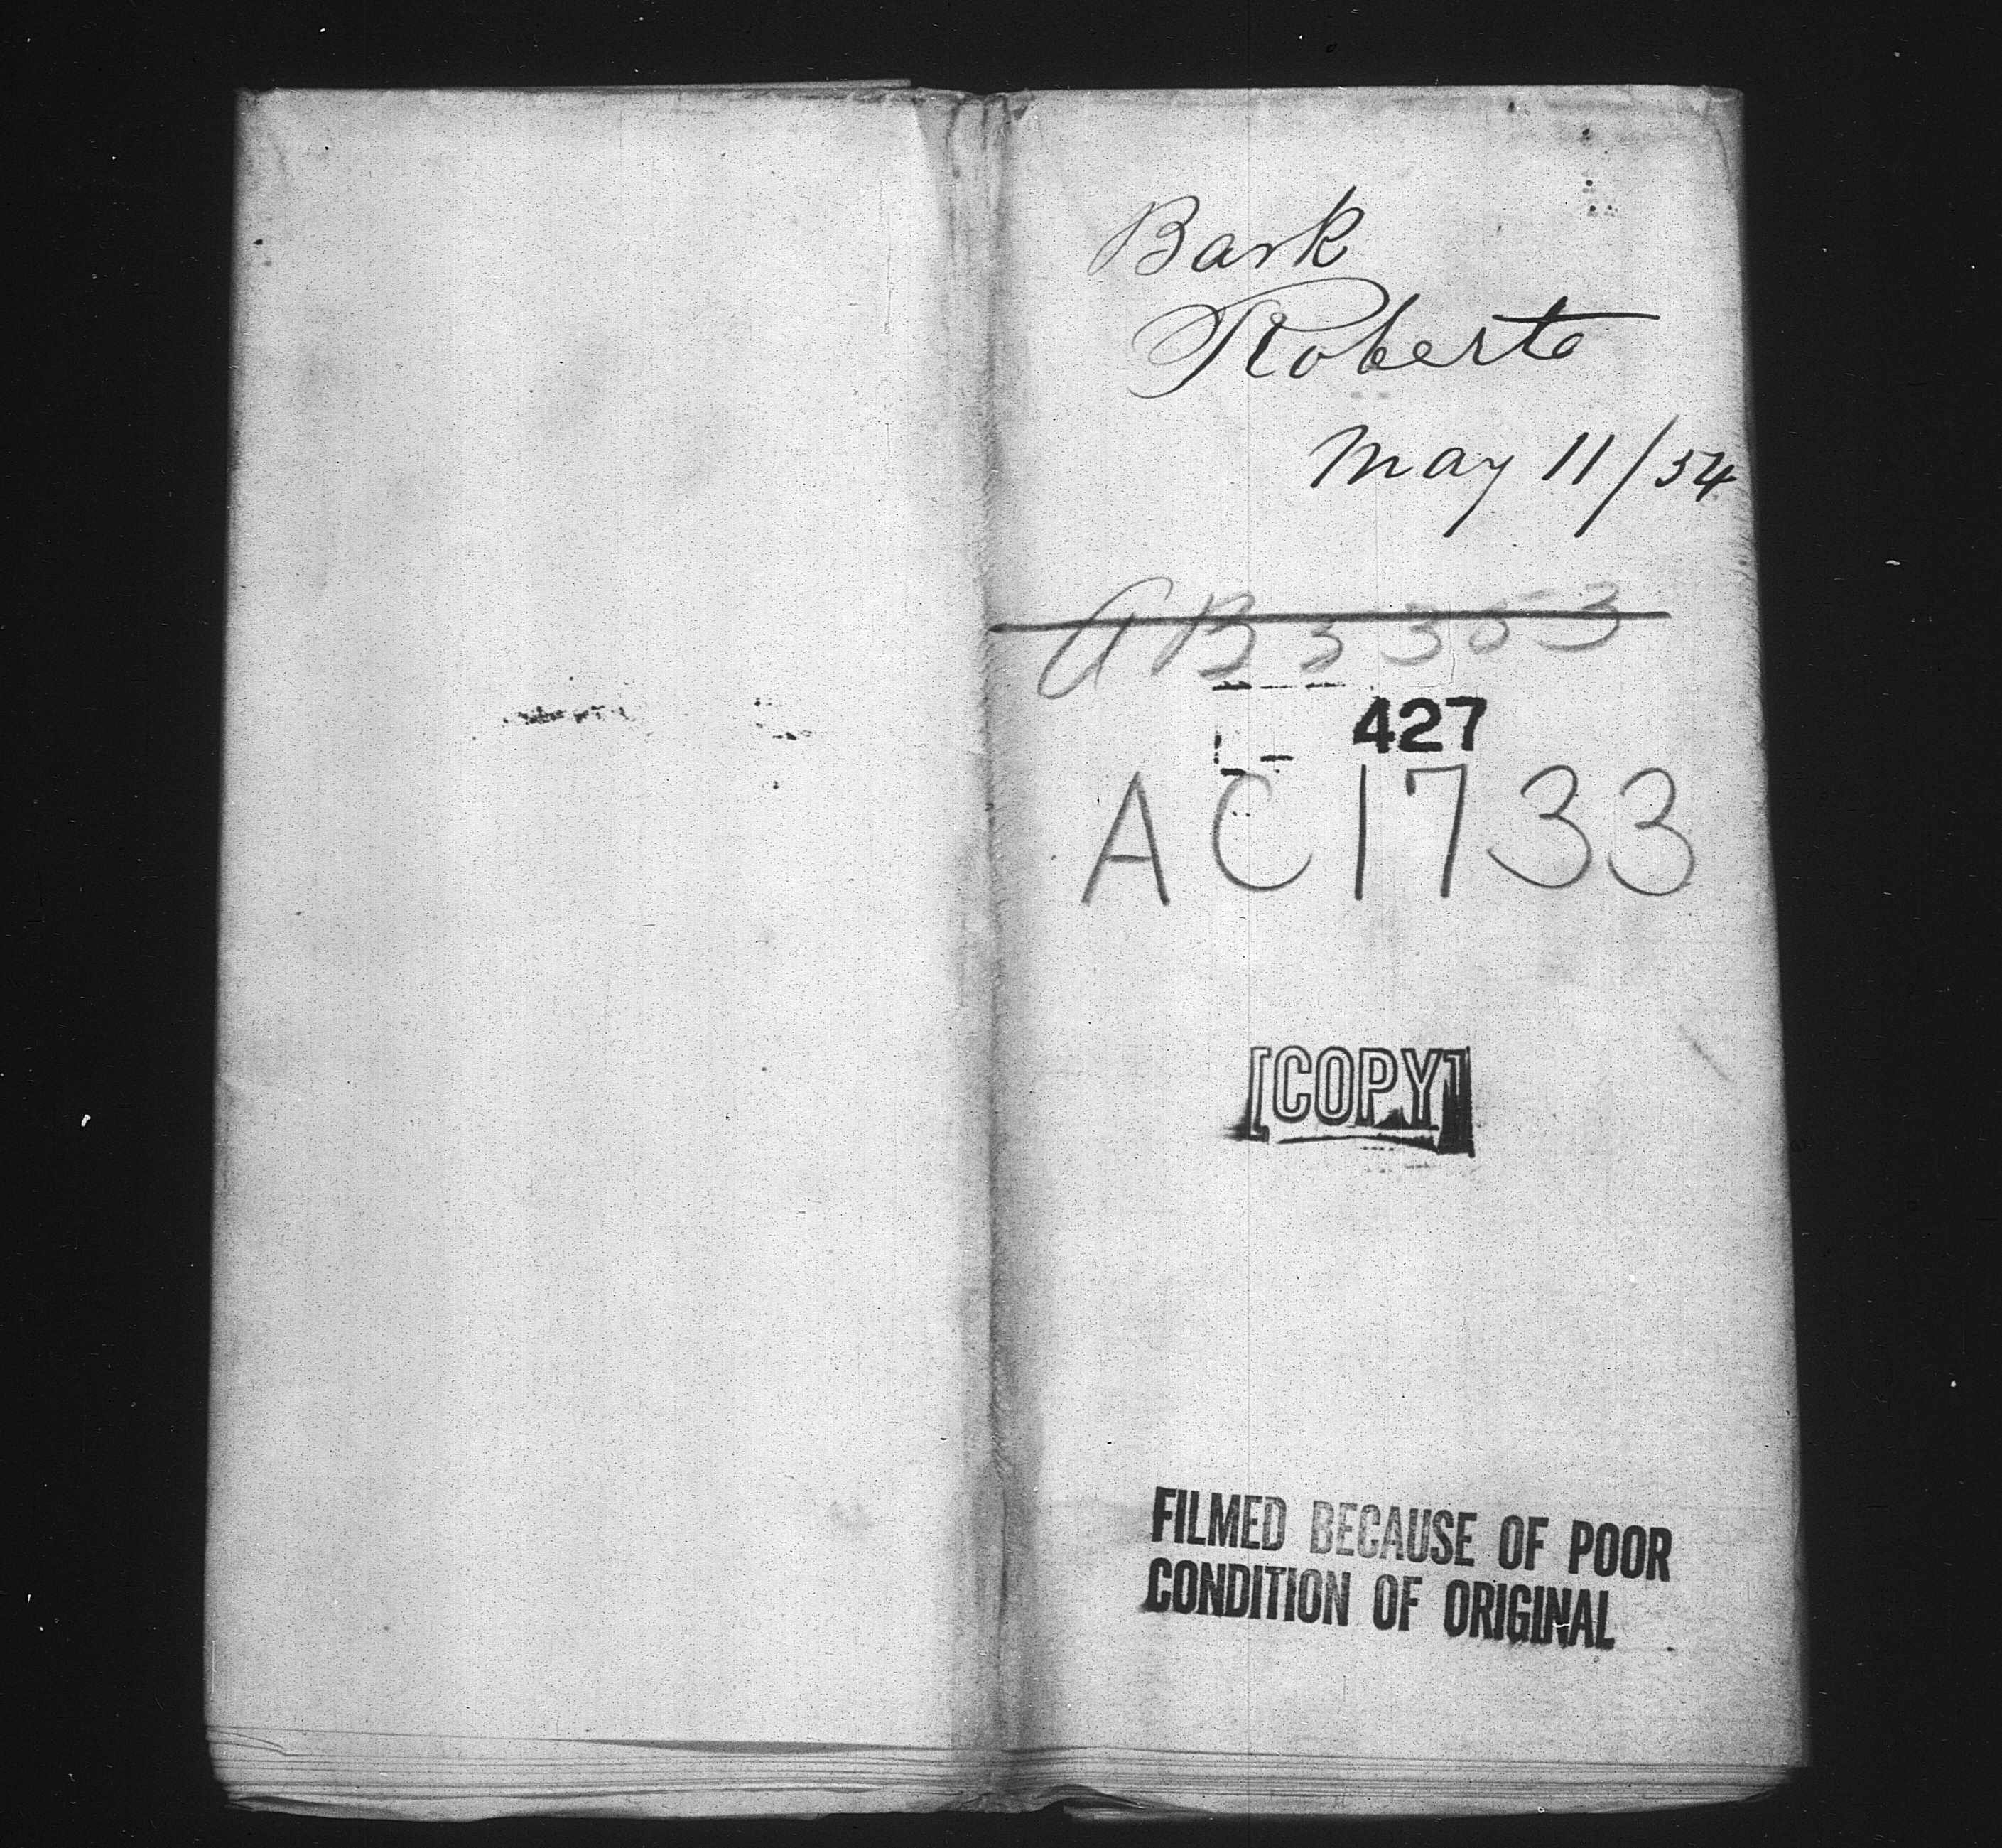 Bark
Roberts
May 11/54
AB3353
427
AC1733
[COPY]
FILMED BECAUSE OF POOR
CONDITION OF ORIGINAL